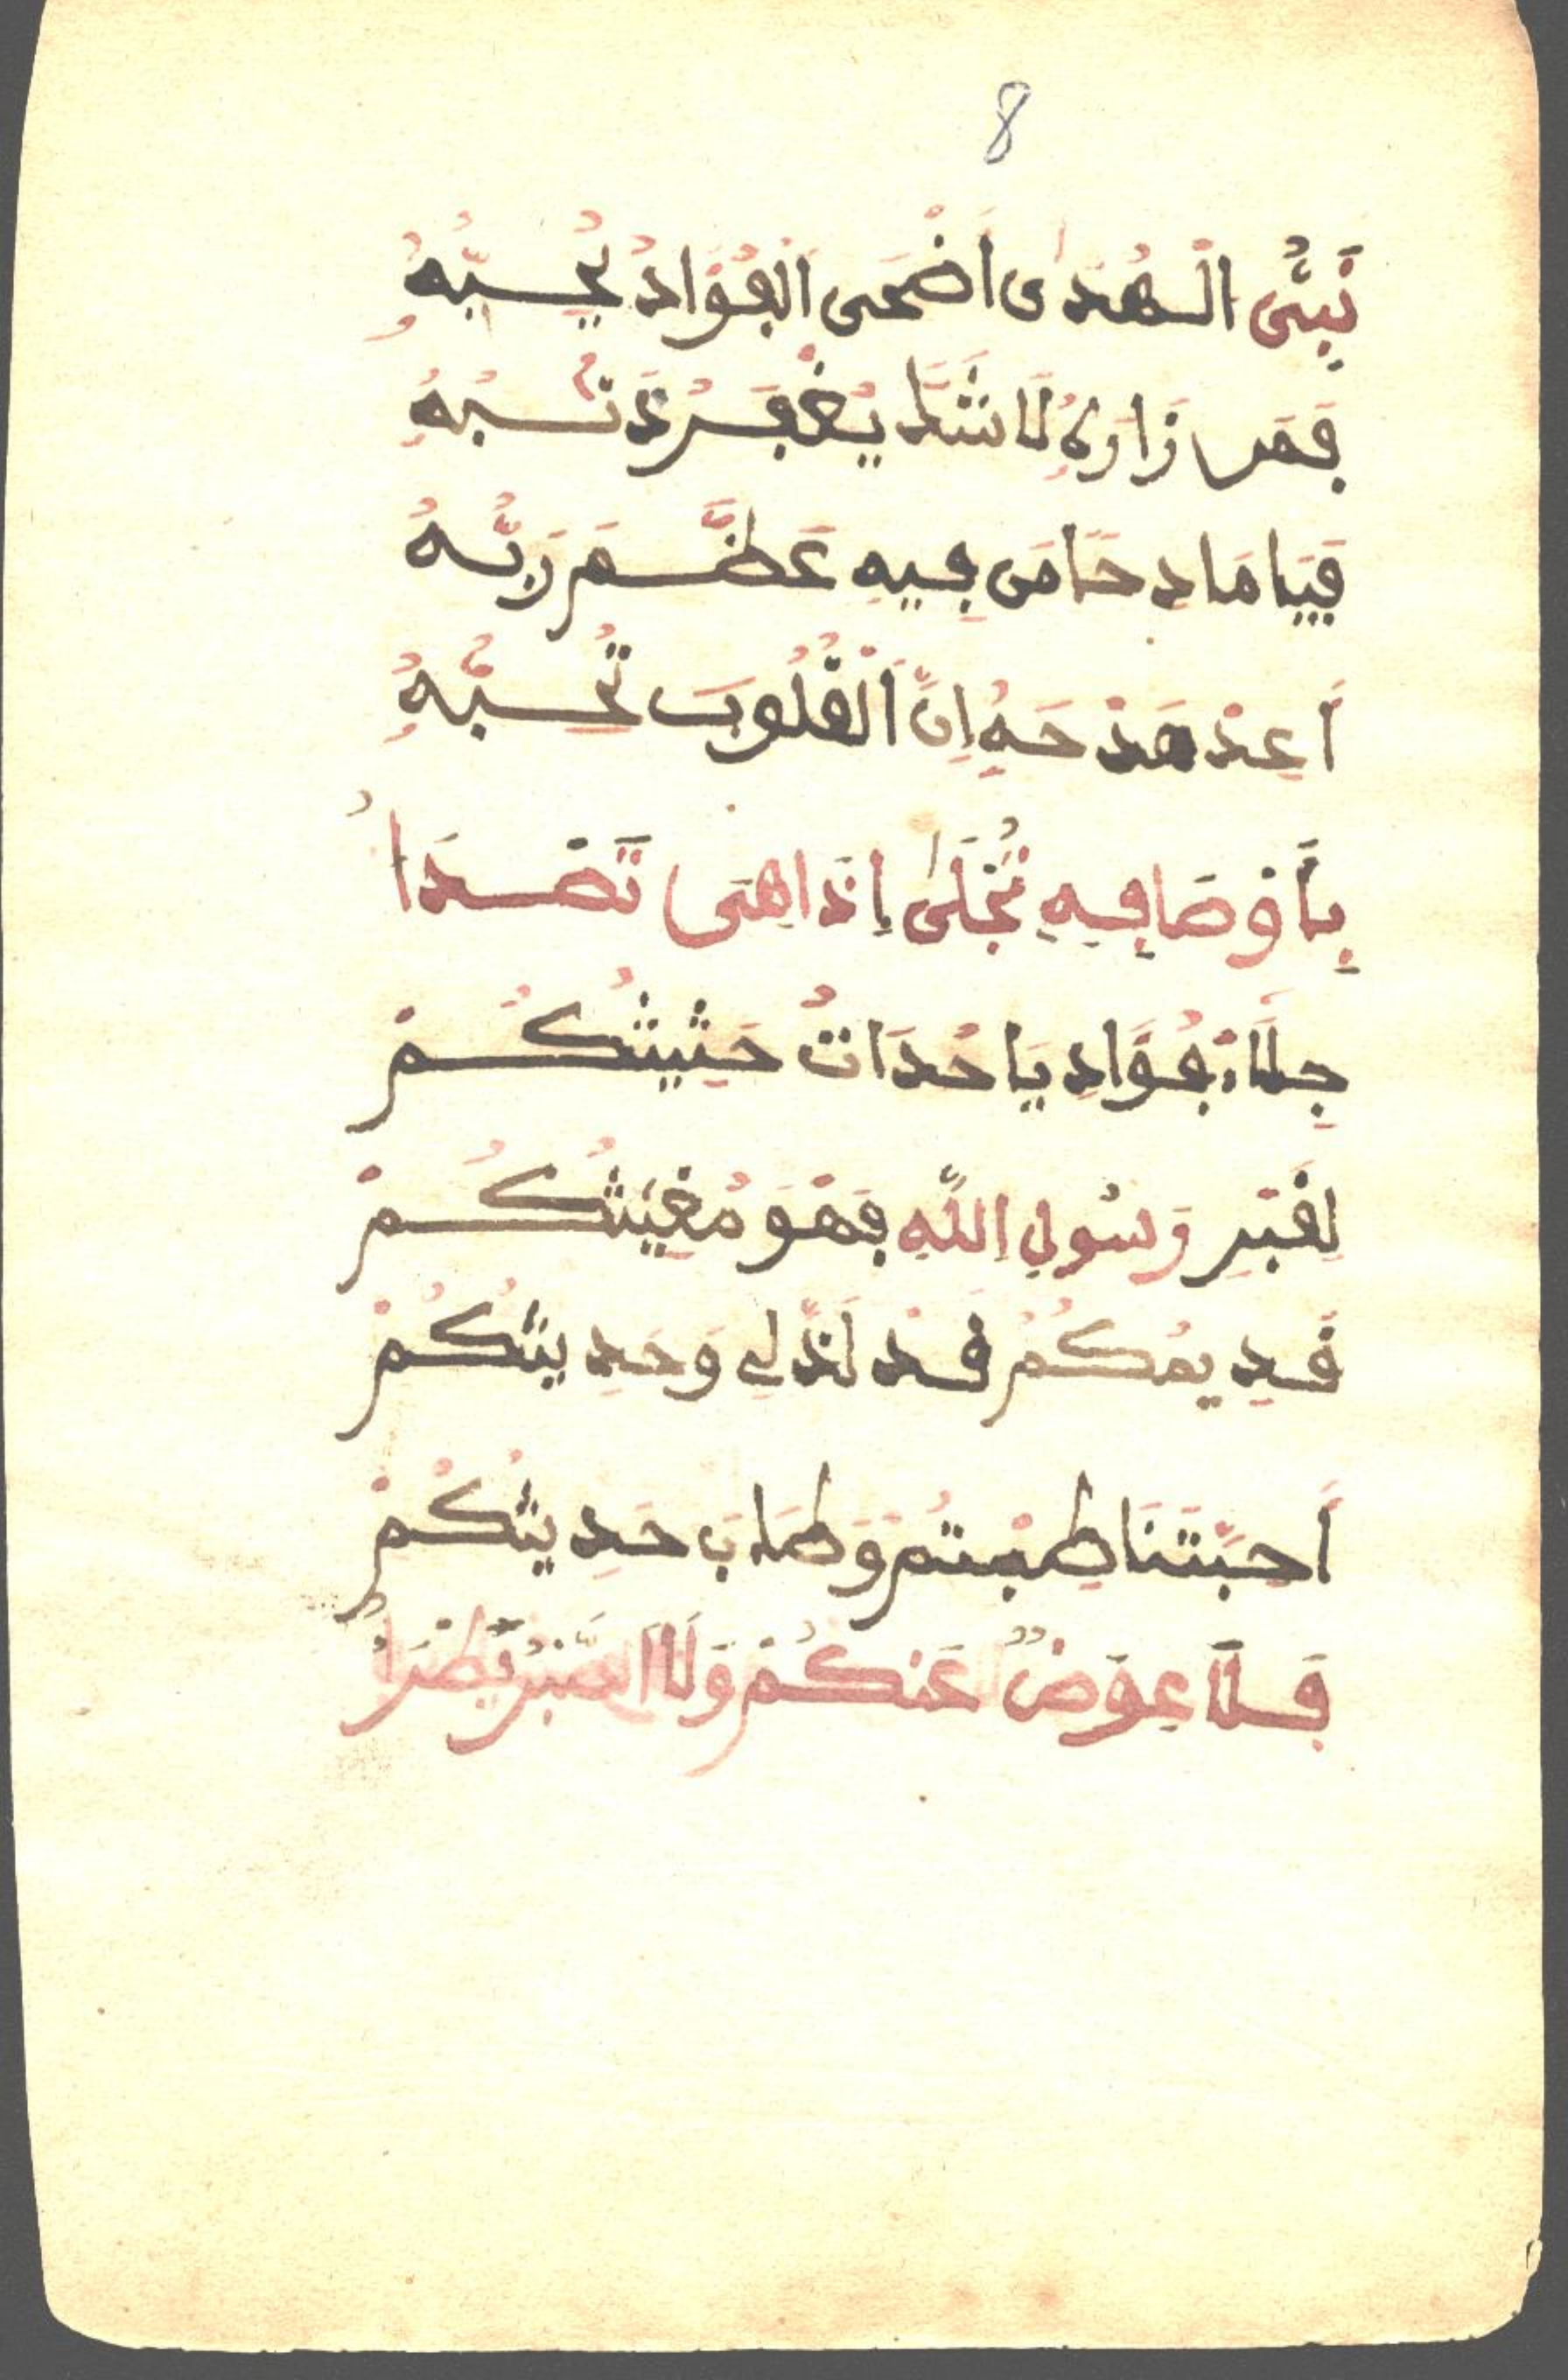 8
نَبِيُّ الْهُدَى اَضْحَى الْفُؤَادُ يُحِبُّهُ
فَمَن زَارَهُ لَا شَكَّ يُغْفَرُ ذَنْبُهُ
فَيَا مَادِحًا مَن فِيهِ عَظَّمَ رَبُّهُ
اَعِدْ مَدْحَهُ اِنَّ الْقُلُوبَ تُحِبُّهُ
بِأَوْصَافِهِ تُجْلَى إِذَا هِيَ تَصْدَا
جِلَاءُ فُؤَادِ يَا حُدَاتُ حَثِيثُكُمْ
لِقَبْرِ رَسُولِ اللَّهِ فَهْوَ مُغِيثُكُمْ
قَدِيمُكُمُ قَدْ لَذَّ لِي وَحَدِيثُكُمْ
اَحِبَّتَنَا طِبْتُمْ وَطَابَ حَدِيثُكُمْ
فَلَا عِوَضٌ عَنْكُمْ وَلَا الصَّبْرُ